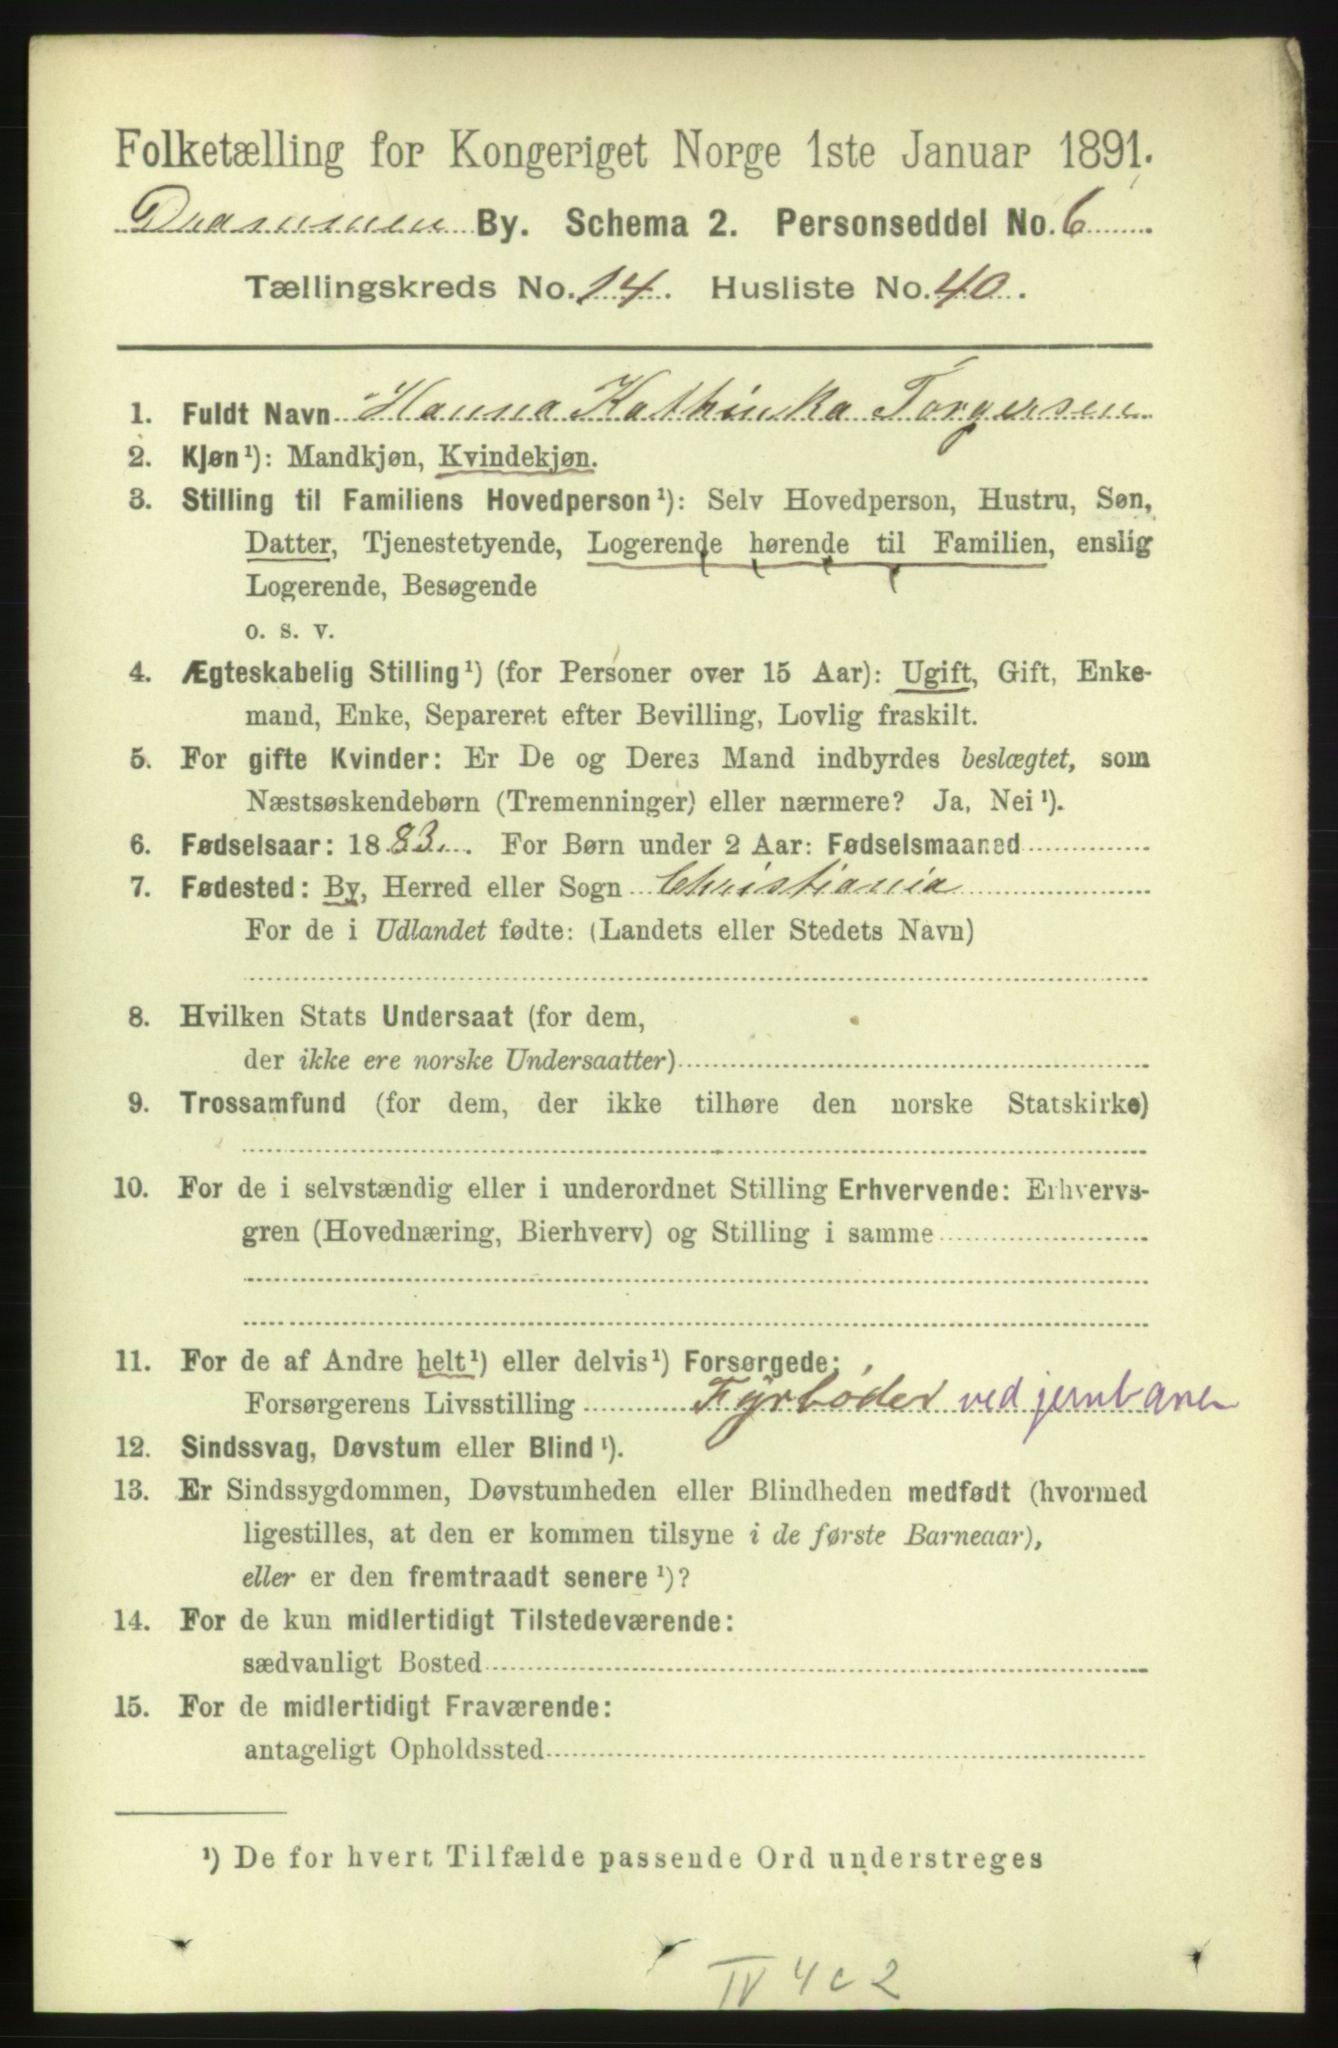 Folketælling for Kongeriget Norge 1ste Januar 1891.
Drammen By. Schema 2. Personseddel No. 6
Tællingskreds No. 14. Husliste No. 40.
1. Fuldt Navn Hanna Kathinka Torgersen
2. Kjøn¹): Mandkjøn, Kvindekjøn.
3. Stilling til Familiens Hovedperson¹): Selv Hovedperson, Hustru, Søn,
Datter, Tjenestetyende, Logerende hørende til Familien, enslig
Logerende, Besøgende
o. s. v.
4. Ægteskabelig Stilling¹) (for Personer over 15 Aar): Ugift, Gift, Enke-
mand, Enke, Separeret efter Bevilling, Lovlig fraskilt.
5. For gifte Kvinder: Er De og Deres Mand indbyrdes beslægtet, som
Næstsøskendebørn (Tremenninger) eller nærmere? Ja, Nei¹).
6. Fødselsaar: 1883. For Børn under 2 Aar: Fødselsmaaned
7. Fødested: By, Herred eller Sogn Christiania
For de i Udlandet fødte: (Landets eller Stedets Navn)
8. Hvilken Stats Undersaat (for dem,
der ikke ere norske Undersaatter)
9. Trossamfund (for dem, der ikke tilhøre den norske Statskirke)
10. For de i selvstændig eller i underordnet Stilling Erhvervende: Erhvervs-
gren (Hovednæring, Bierhverv) og Stilling i samme
11. For de af Andre helt¹) eller delvis¹) Forsørgede:
Forsørgerens Livsstilling Fyrbøder ved jernbanen
12. Sindssvag, Døvstum eller Blind¹).
13. Er Sindssygdommen, Døvstumheden eller Blindheden medfødt (hvormed
ligestilles, at den er kommen tilsyne i de første Barneaar),
eller er den fremtraadt senere¹)?
14. For de kun midlertidigt Tilstedeværende:
sædvanligt Bosted
15. For de midlertidigt Fraværende:
antageligt Opholdssted
¹) De for hvert Tilfælde passende Ord understreges
IV 4c2